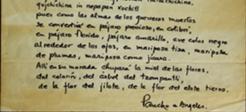 quichichina in nepapan xochitl
pues como las almas de los guerreros muertos
se convertía en pájaro precioso, en colibrí,
en pájaro florido, pájaro amarillo, ave color negro
alrededor de los ojos, en mariposa tiza, mariposa
de plumas, mariposa como jícara.
Allí en su morada chupará la miel de las flores,
del colorín, del árbol del tzompantli,
de la flor del jilote, de la flor del elote tierno.